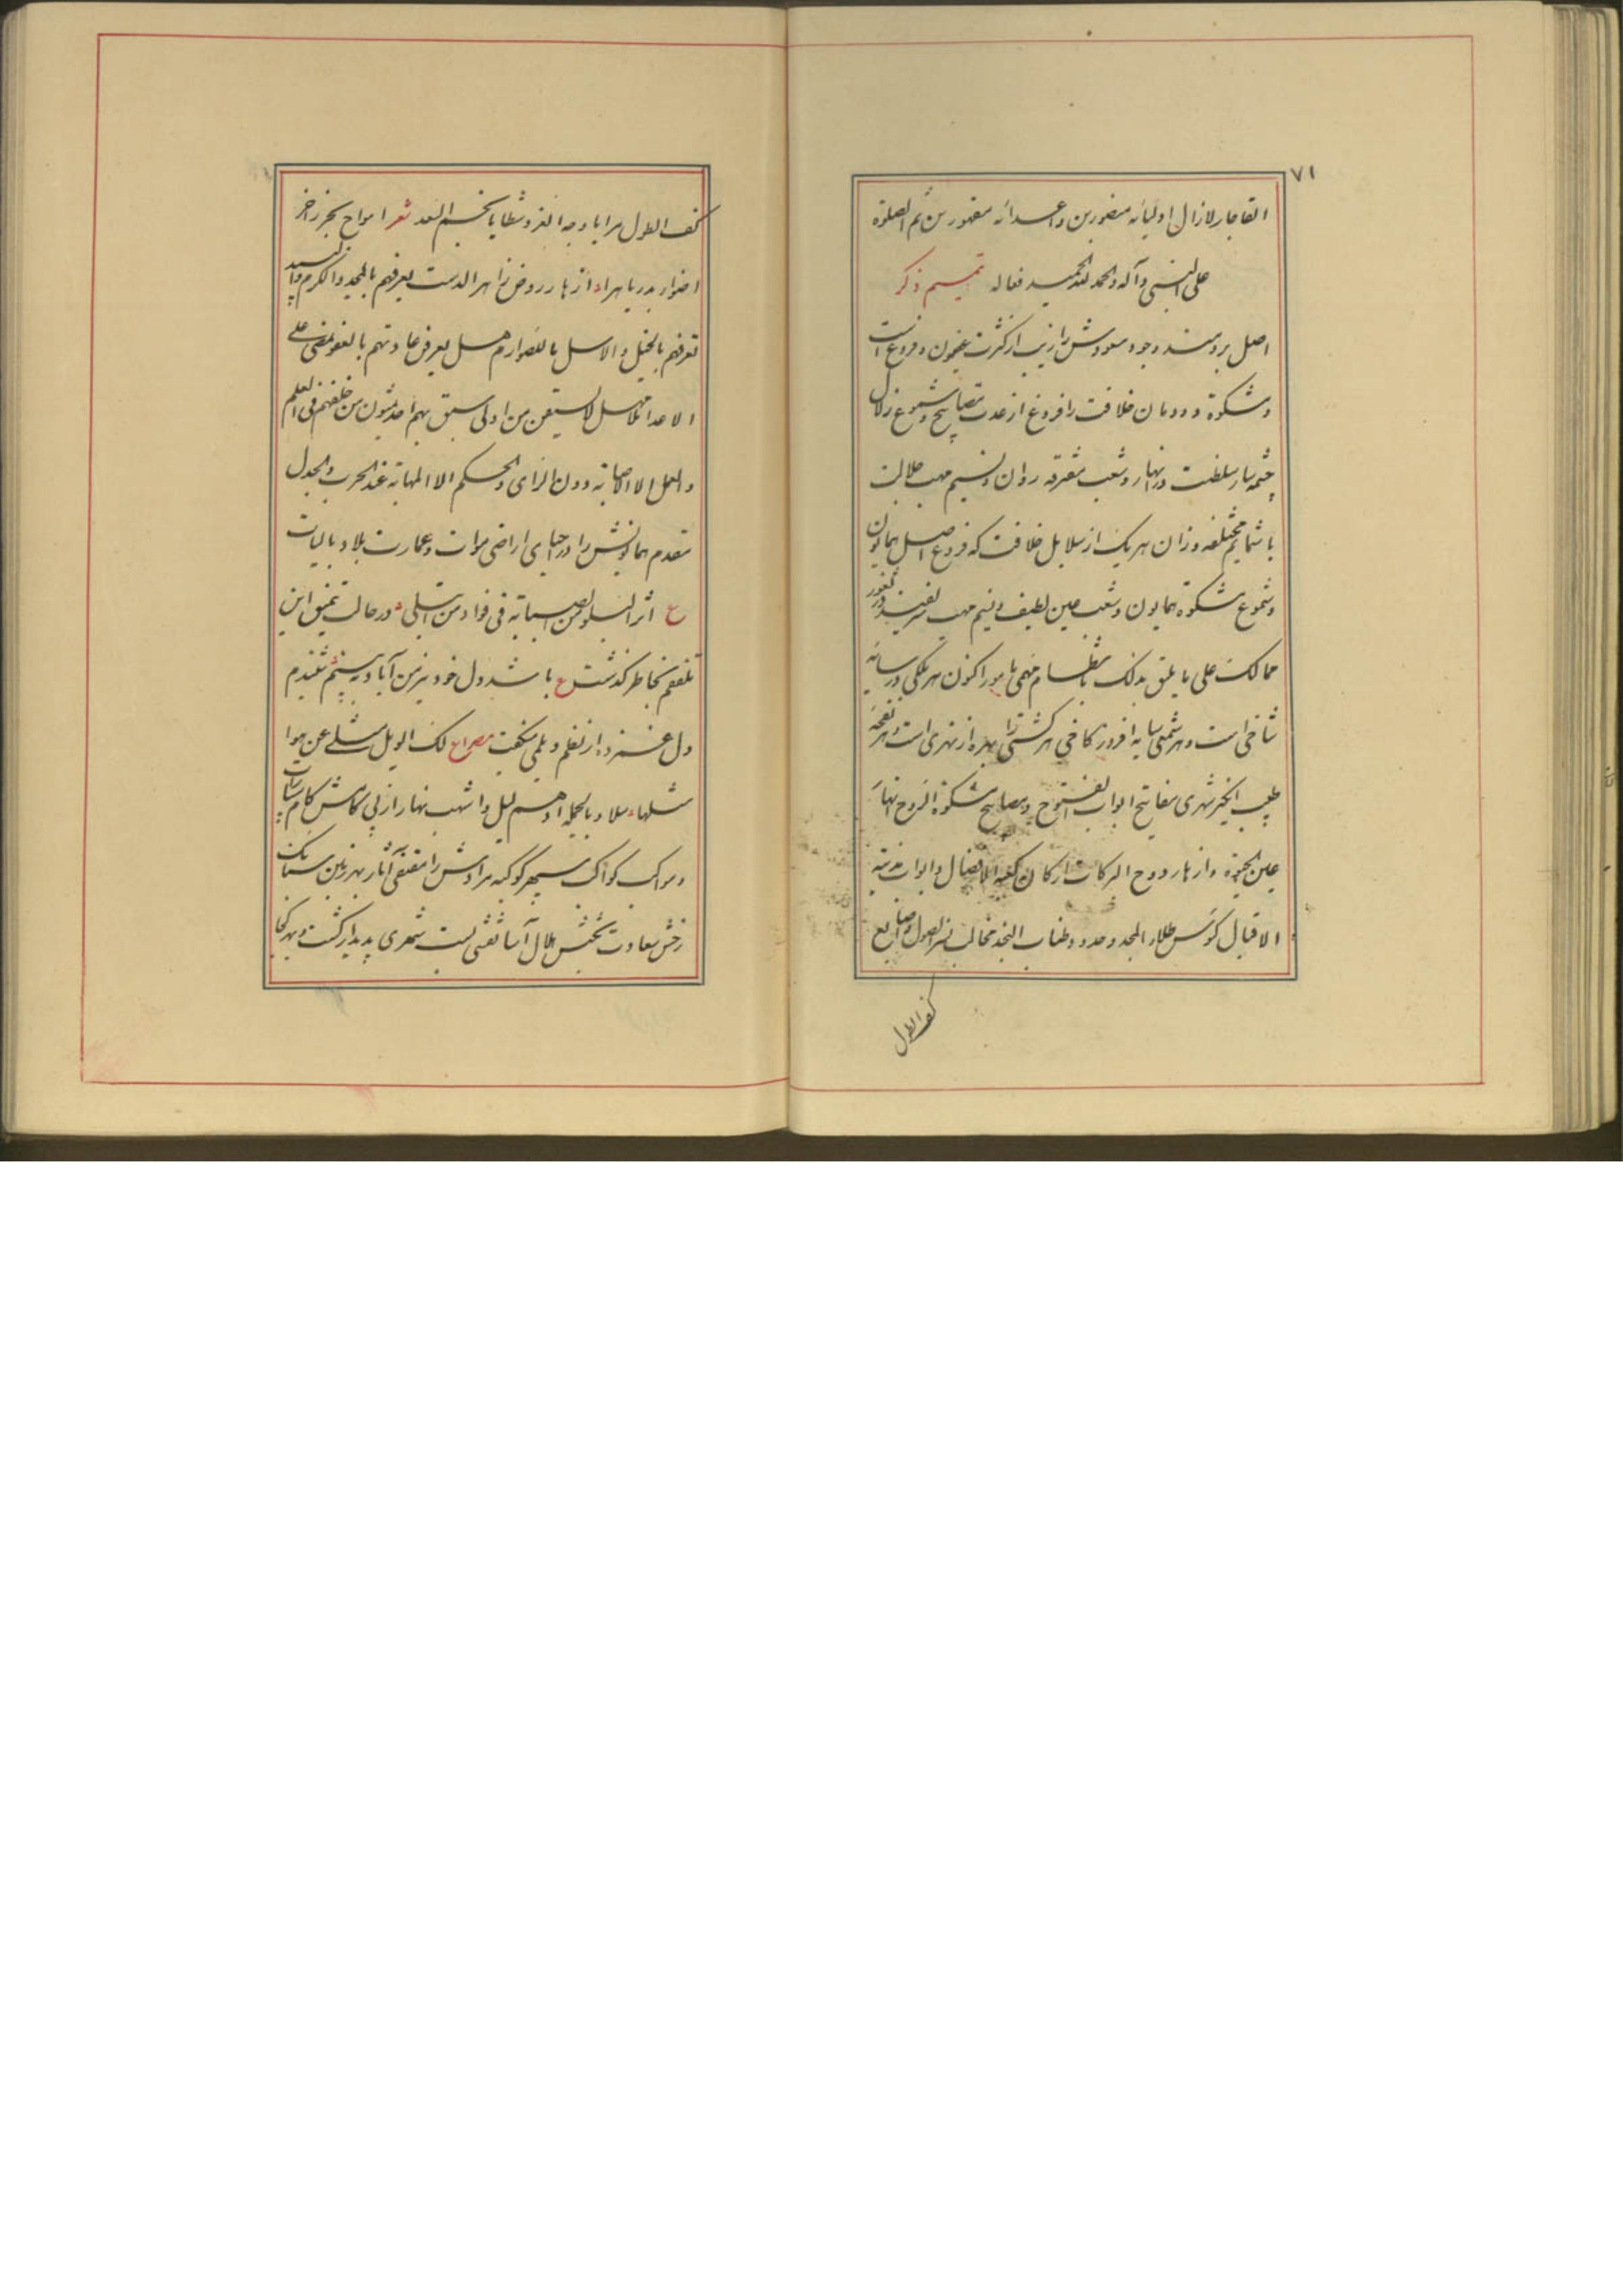 ۷۱
القاجار لازال اولیائه منصورین و اعدائه مقهورین ثم الصلوة
علی النبی و آله و الحمد لله الحمید فعاله تمیم ذکر
اصل برومند وجود مسعودش را زیب از کثرت غصون و فروع است
و مشکوة دودمان خلافت را فروغ از عدت مصابیح و شموع زلال
چشمه سار سلطنت در انهار و شعب متفرقه روان و نسیم مهب جلالت
با شمایم مختلفه وزان هر یک از سلایل خلافت که فروع اصل همایون
و شموع مشکوة همایون و شعب معین لطیف و نسیم مهب شریفند در ثغور
ممالک علی ما یلیق بذلک بانتظام مهمی مامور اکنون هر ملکی در سایه
شاخی است و هر شمعی سایه افروز کاخی هر کشتی را بهره از نهری است و هر نفحه
طیب انگیز شهری مفاتیح ابواب الفتوح و مصابیح مشکوة الروح انهار
عین الحیوة و ازهار دوح البرکات ارکان کعبه الافضال و ابواب مدینة
الاقبال کؤس طلاء المجد و حدود ظبات النجد مخالب نسر الصول و اصابع
کف الطول
کف الطول مرایا وجه العز و شظایا نجم السعد شعر امواج بحر زاخر
اضواء بدر باهر ازهار روض زاهر الدست یعرفهم بالمجد و الکرم و
تعرفهم بالخیل و الاسل بالصوارم هل یعرف عاداتهم بالعفو تمضی علی
الاعدا مهل لا سیقن من اولی سبق بهم احد یمشون من خلفهم فی العلم
و العمل الا الاصابة دون الرای و الحکم الا المهابة عند الحرب و الجدل
مقدم همایونش را در احیای اراضی موات و عمارت بلاد بالیات
ع اثر السلو من الصبابة فی فواد من ابتلی در حالت تنمیق این
بخاطر گذشت ع باشد دل خود نیز من آباد به بینم
دل غمزد از تظلم و بلی میگفت مصراع لک الویل مثلی عن هوا
مثلها سلا و بالجمله ادهم لیل و اشهب نهار را از پی کامش کام
و مواکب کواکب سپهر کوکبه مرادش را مقتفی آثار بهر زمین سنابک
رخش سعادت بخشش هلال آسا نقشی بست شهری پدیدار گشت و بهر کجا